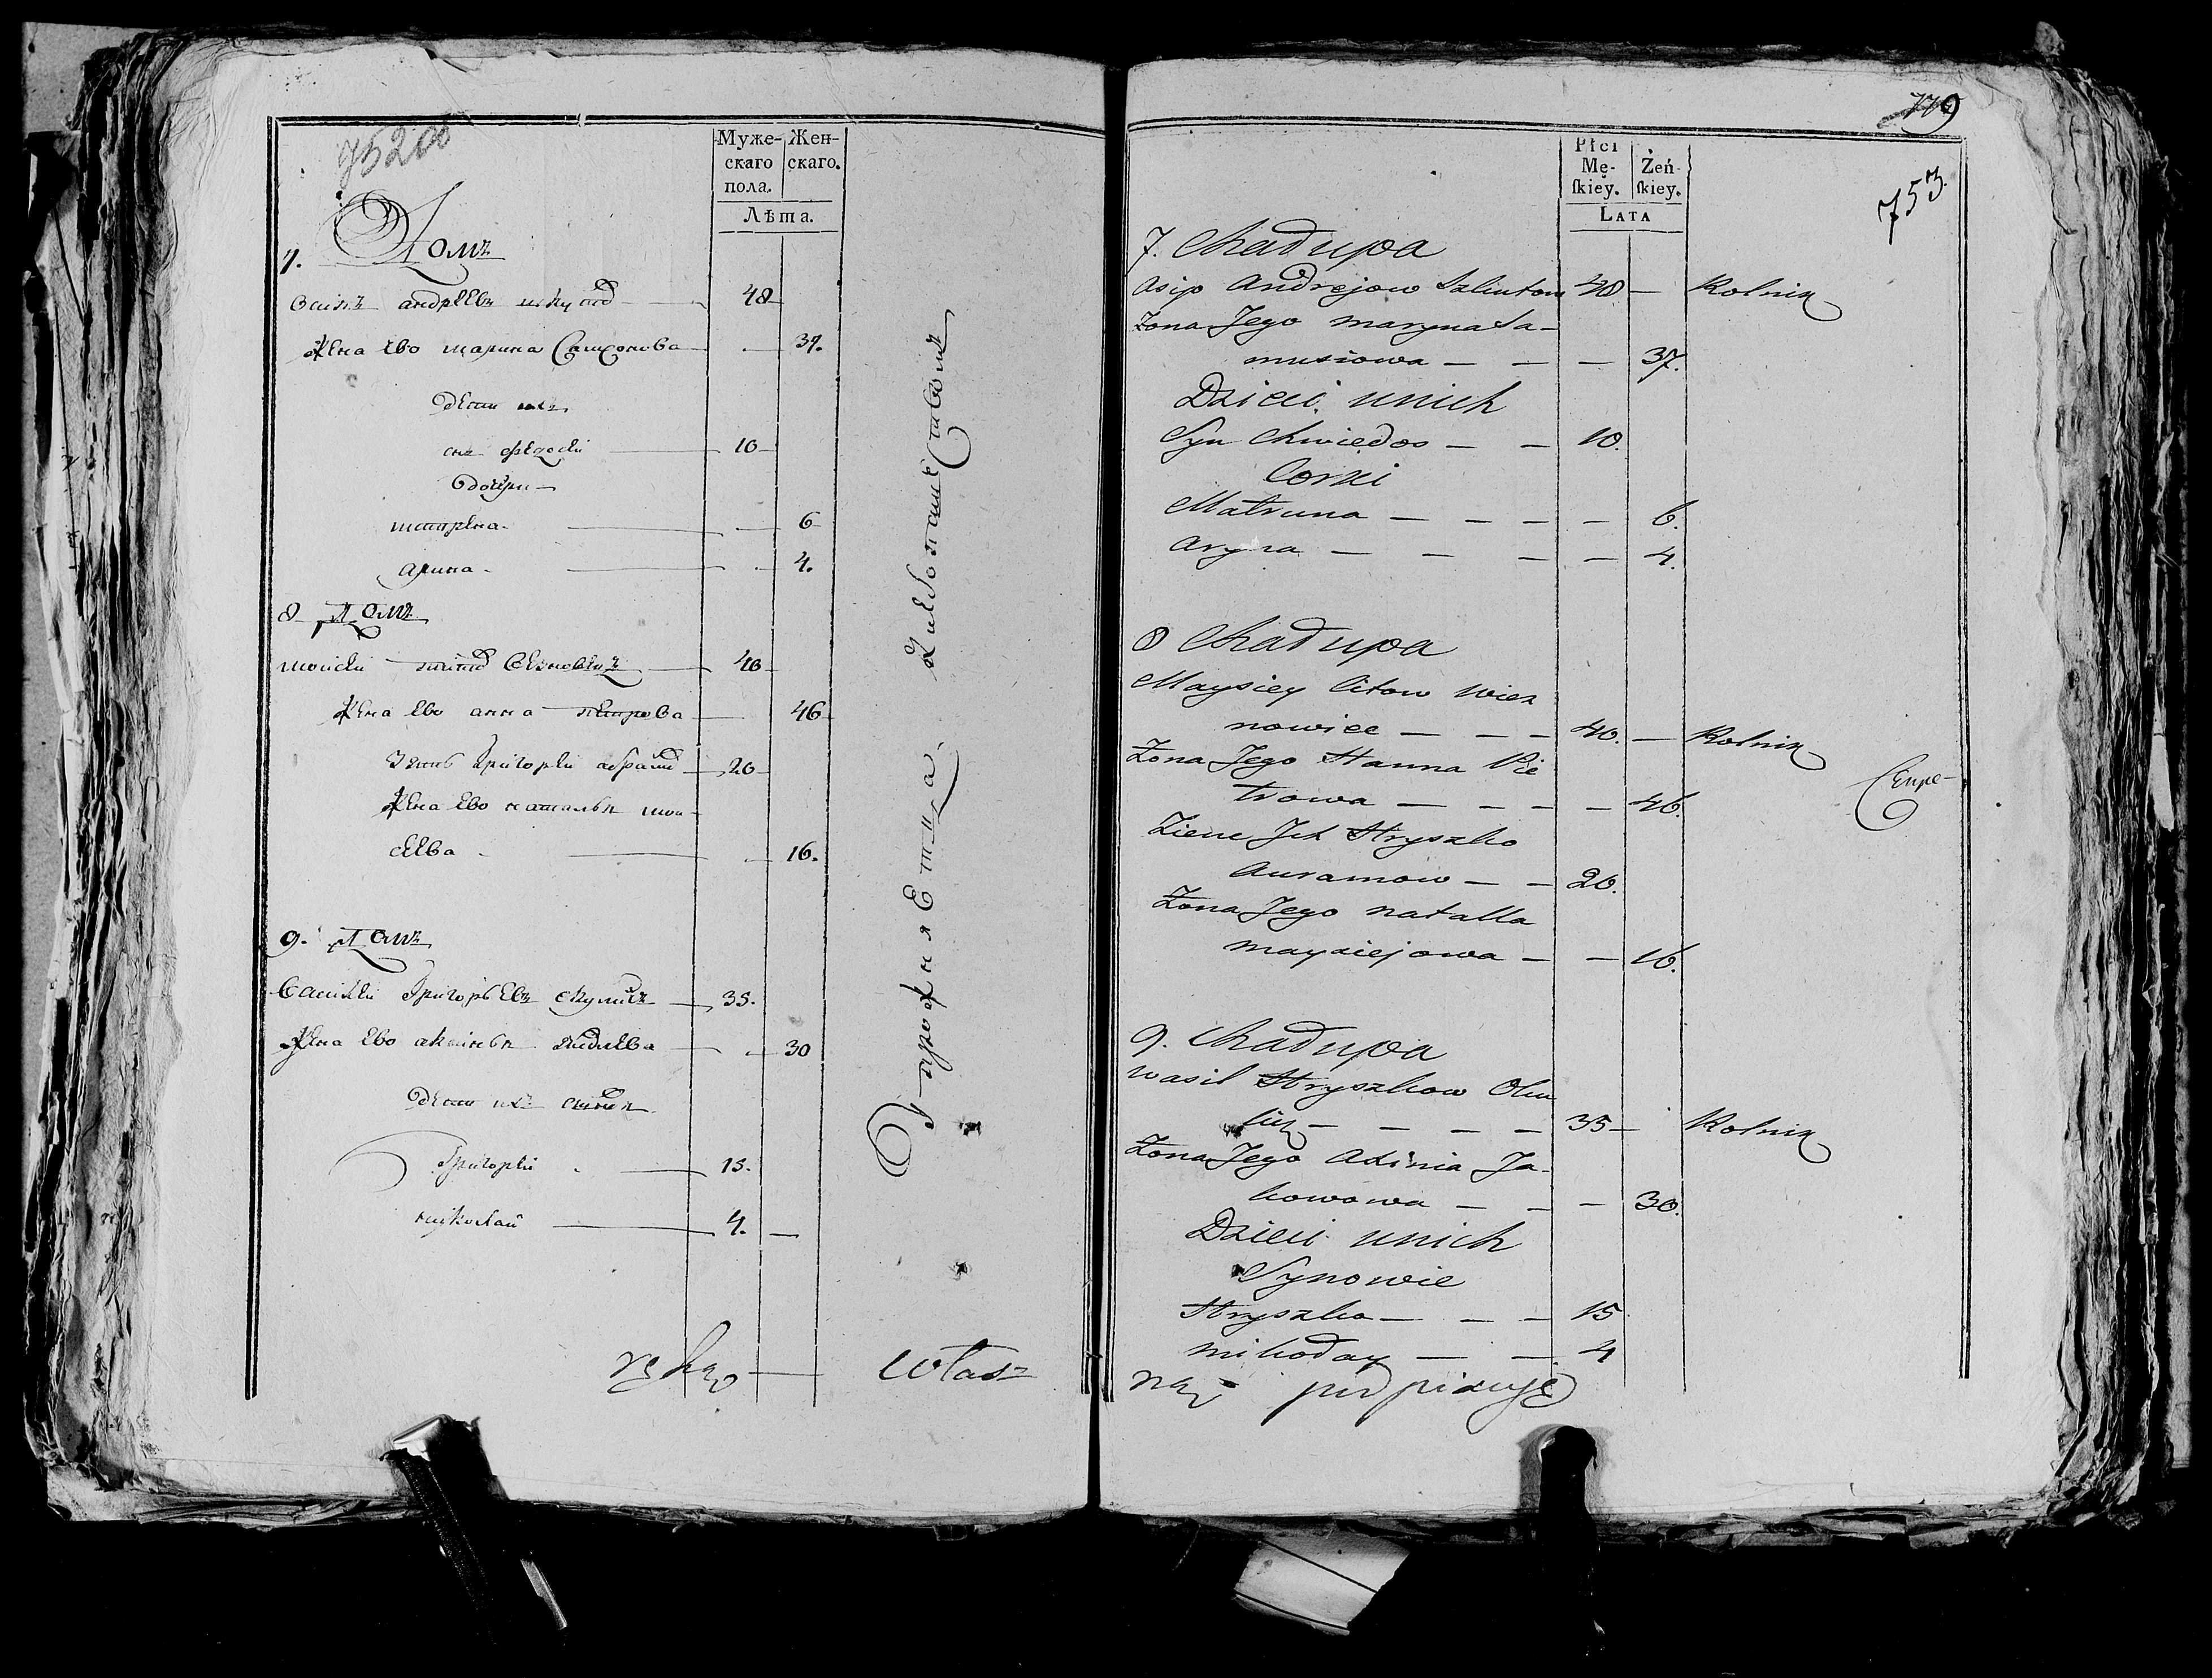 752 об
Муже-
скаго
пола.
Жен-
скаго.
Лѣта.
7. Домъ
Осипъ андрѣевъ 48
Жена ево марина Самсонова 37.
дети ихъ
снъ Федосеи 10
дочери
матрена 6
арина 4.
8 Домъ
моисеи титов 40
Жена ево анна петрова 46
Зять Григореи абрамов 20
Жена ево наталья мои-
сеева 16.
9. Домъ
Василеи Григорьевъ 35.
Жена ево аксинья 30
дети ихъ сыновя
Григореи 15.
николаи 4.
ręką własz
779
753.
Płci
Mę-
skiey.
Żeń-
skiey.
LATA
7. Chałupa
Asip Andrejow 48 — Rolnik
Żona Jego maryna Sa-
musiowa — — — 37.
Dzieci unich
Syn Chwiedos — — 10.
Corki
Matruna — — — — 6.
Aryna — — — — 4.
8 Chałupa
Maysiey Citow Wiez
nowiec — — — 40. — Rolnik
Żona Jego Hanna Pie
trowa — — — — 46.
Zienc Jch Hryszko
Auramow — — 20.
Żona Jego natalla
maysiejowa — — 16.
9. Chałupa
Wasil Hryszkow
— — — — 35 — Rolnik
Żona Jego Axinia Ja-
kowowa — — — 30.
Dzieci unich
Synowie
Hryszko — — — 15
mikołay — — 4
ną podpisuję